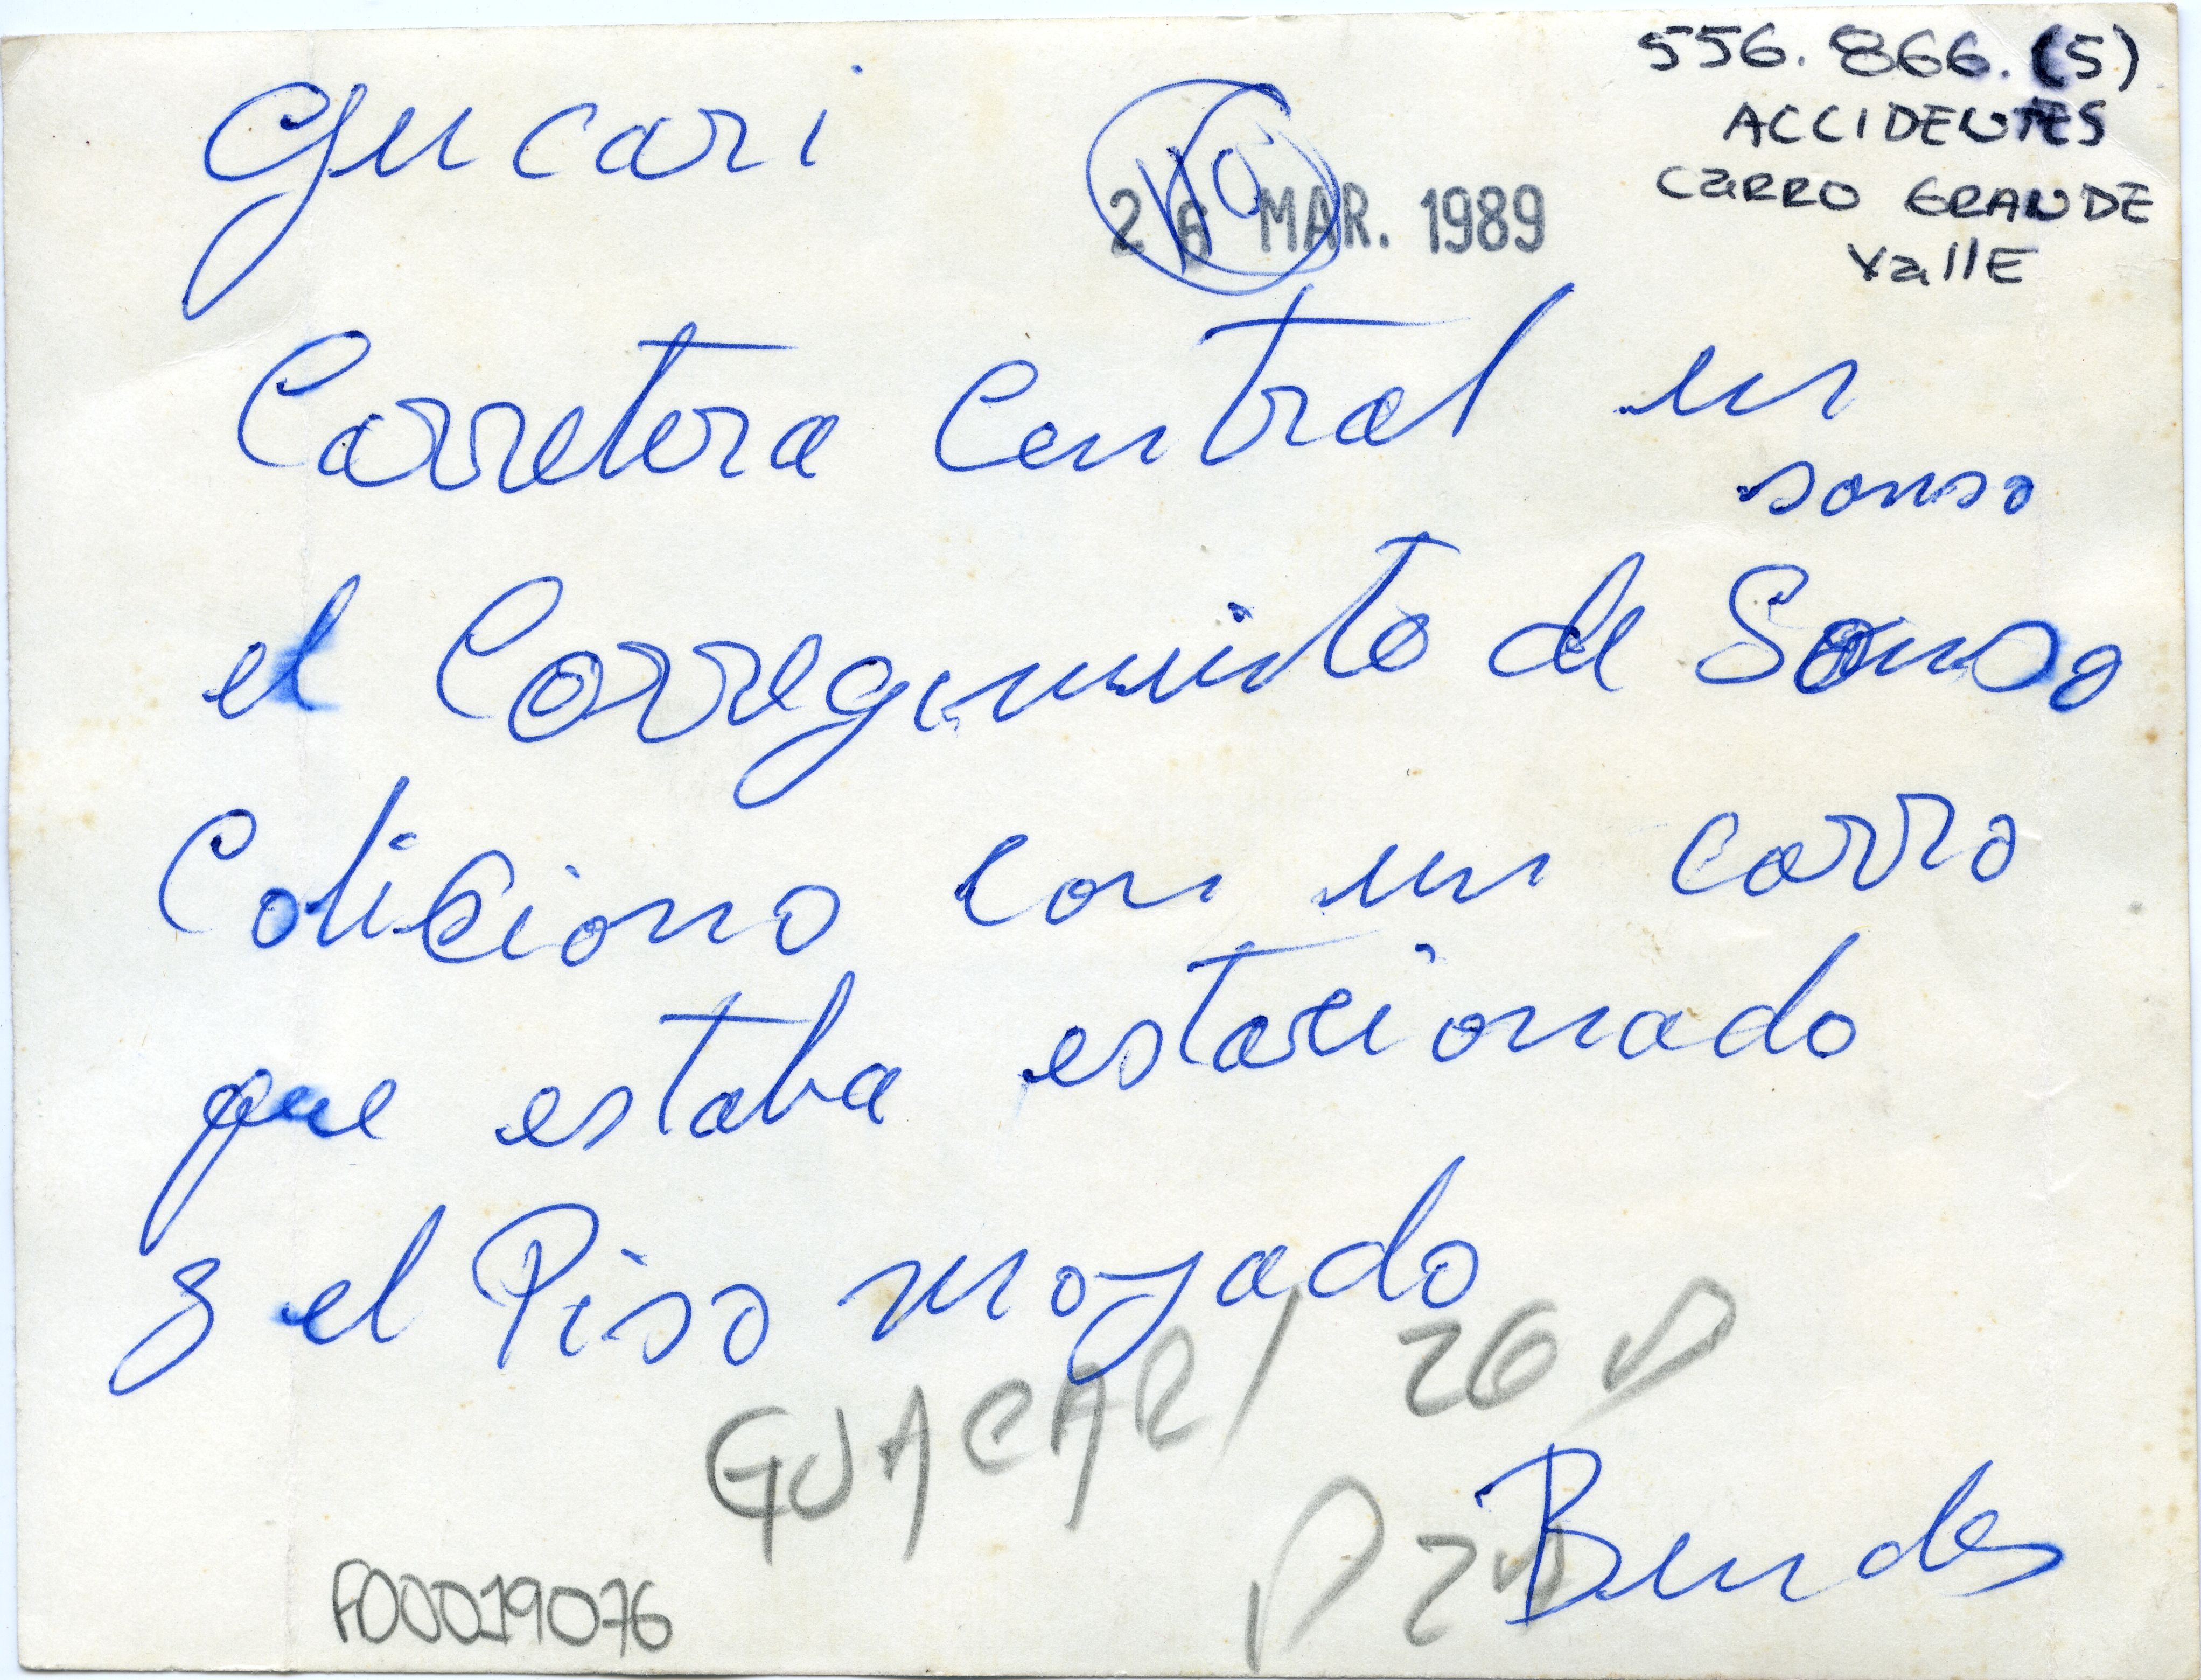 556.866.(5)
ACCIDENTES
CARRO GRANDE
Valle
Gucari
26 MAR. 1989
Carretera Central en
sonso
el Corregimiento de Sonso
Colisiono con un carro
que estaba estacionado
y el Piso mojado
GUACARI 26
P 2
F00019076